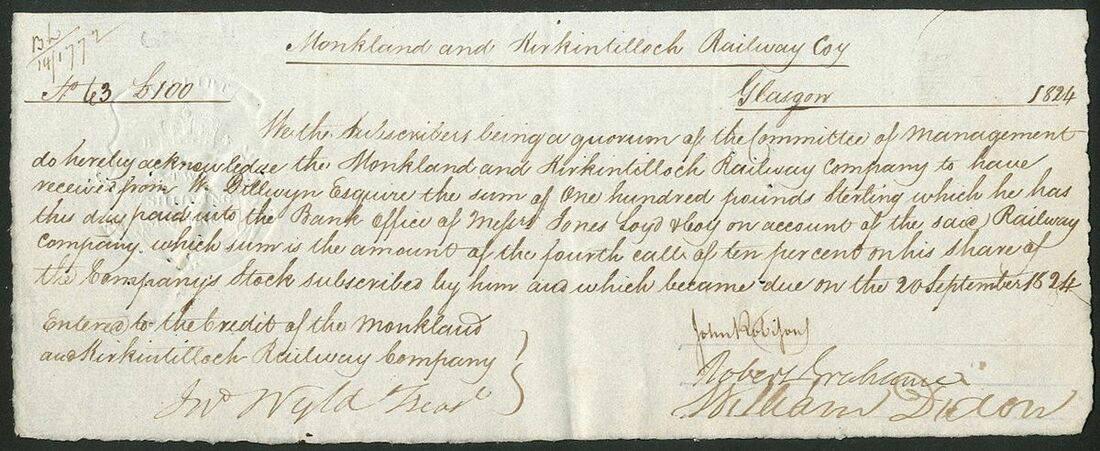 14/1772
Monkland and Kirkintilloch Railway Coy
No 63 £100 Glasgow 1824
We the Subscribers being a quorum of the Committee of Management
do hereby acknowledge the Monkland and Kirkintilloch Railway Company to have
received from W. Dillwyn Esquire the sum of One hundred pounds Sterling which he has
this day paid into the Bank Office of Messrs Jones Loyd & Coy on account of the said Railway
Company, which sum is the amount of the fourth call of ten percent on his share of
the Company's Stock subscribed by him and which became due on the 20 September 1824
Entered to the Credit of the Monkland
and Kirkintilloch Railway Company
Jno Wyld Treasr
John Robison
Robert Grahame
William Dixon
SHILLING